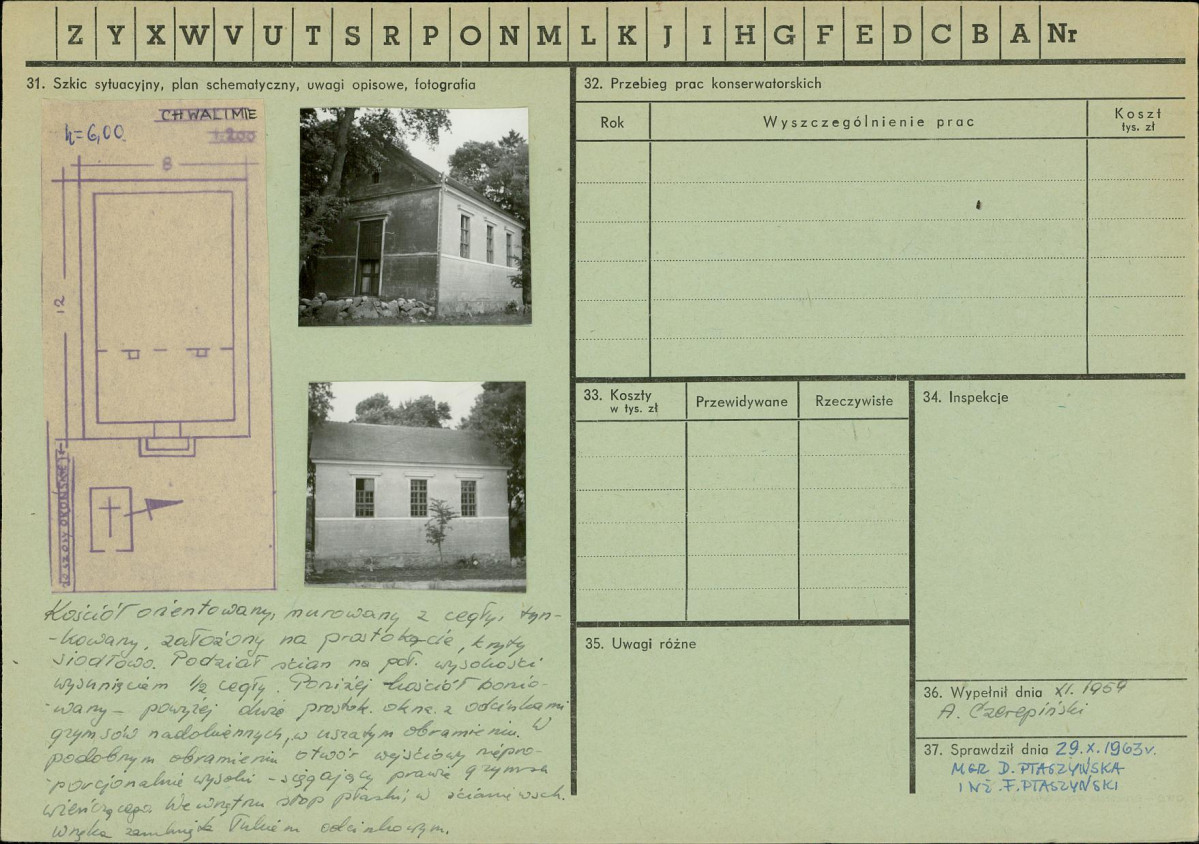 Z Y X W V U T S R P O N M L K J I H G F E D C B A Nr
31. Szkic sytuacyjny, plan schematyczny, uwagi opisowe, fotografia
CHWALIMIE
h=6,00
1:200
8
12
Kościół orientowany, murowany z cegły, tyn-
-kowany, założony na prostokącie, kryty
siodłowo. Podział ścian na poł. wysokości
wysunięciem 1/2 cegły. Poniżej kościół bonio-
-wany - powyżej duże prostok. okna z odcinkami
gzymsów nadokiennych, w uszatym obramieniu. W
podobnym obramieniu otwór wejściowy niepro-
-porcjonalnie wysoki - sięgający prawie gzymsu
wieńczącego. We wnętrzu strop płaski; w ścianie wsch.
wnęka zamknięta łukiem odcinkowym.
32. Przebieg prac konserwatorskich
Rok
Wyszczególnienie prac
Koszt
tys. zł
33. Koszty
w tys. zł
Przewidywane
Rzeczywiste
34. Inspekcje
35. Uwagi różne
36. Wypełnił dnia XI. 1959
A. Czerepiński
37. Sprawdził dnia 29.X.1963 r.
MGR D. PTASZYŃSKA
INŻ. F. PTASZYŃSKI